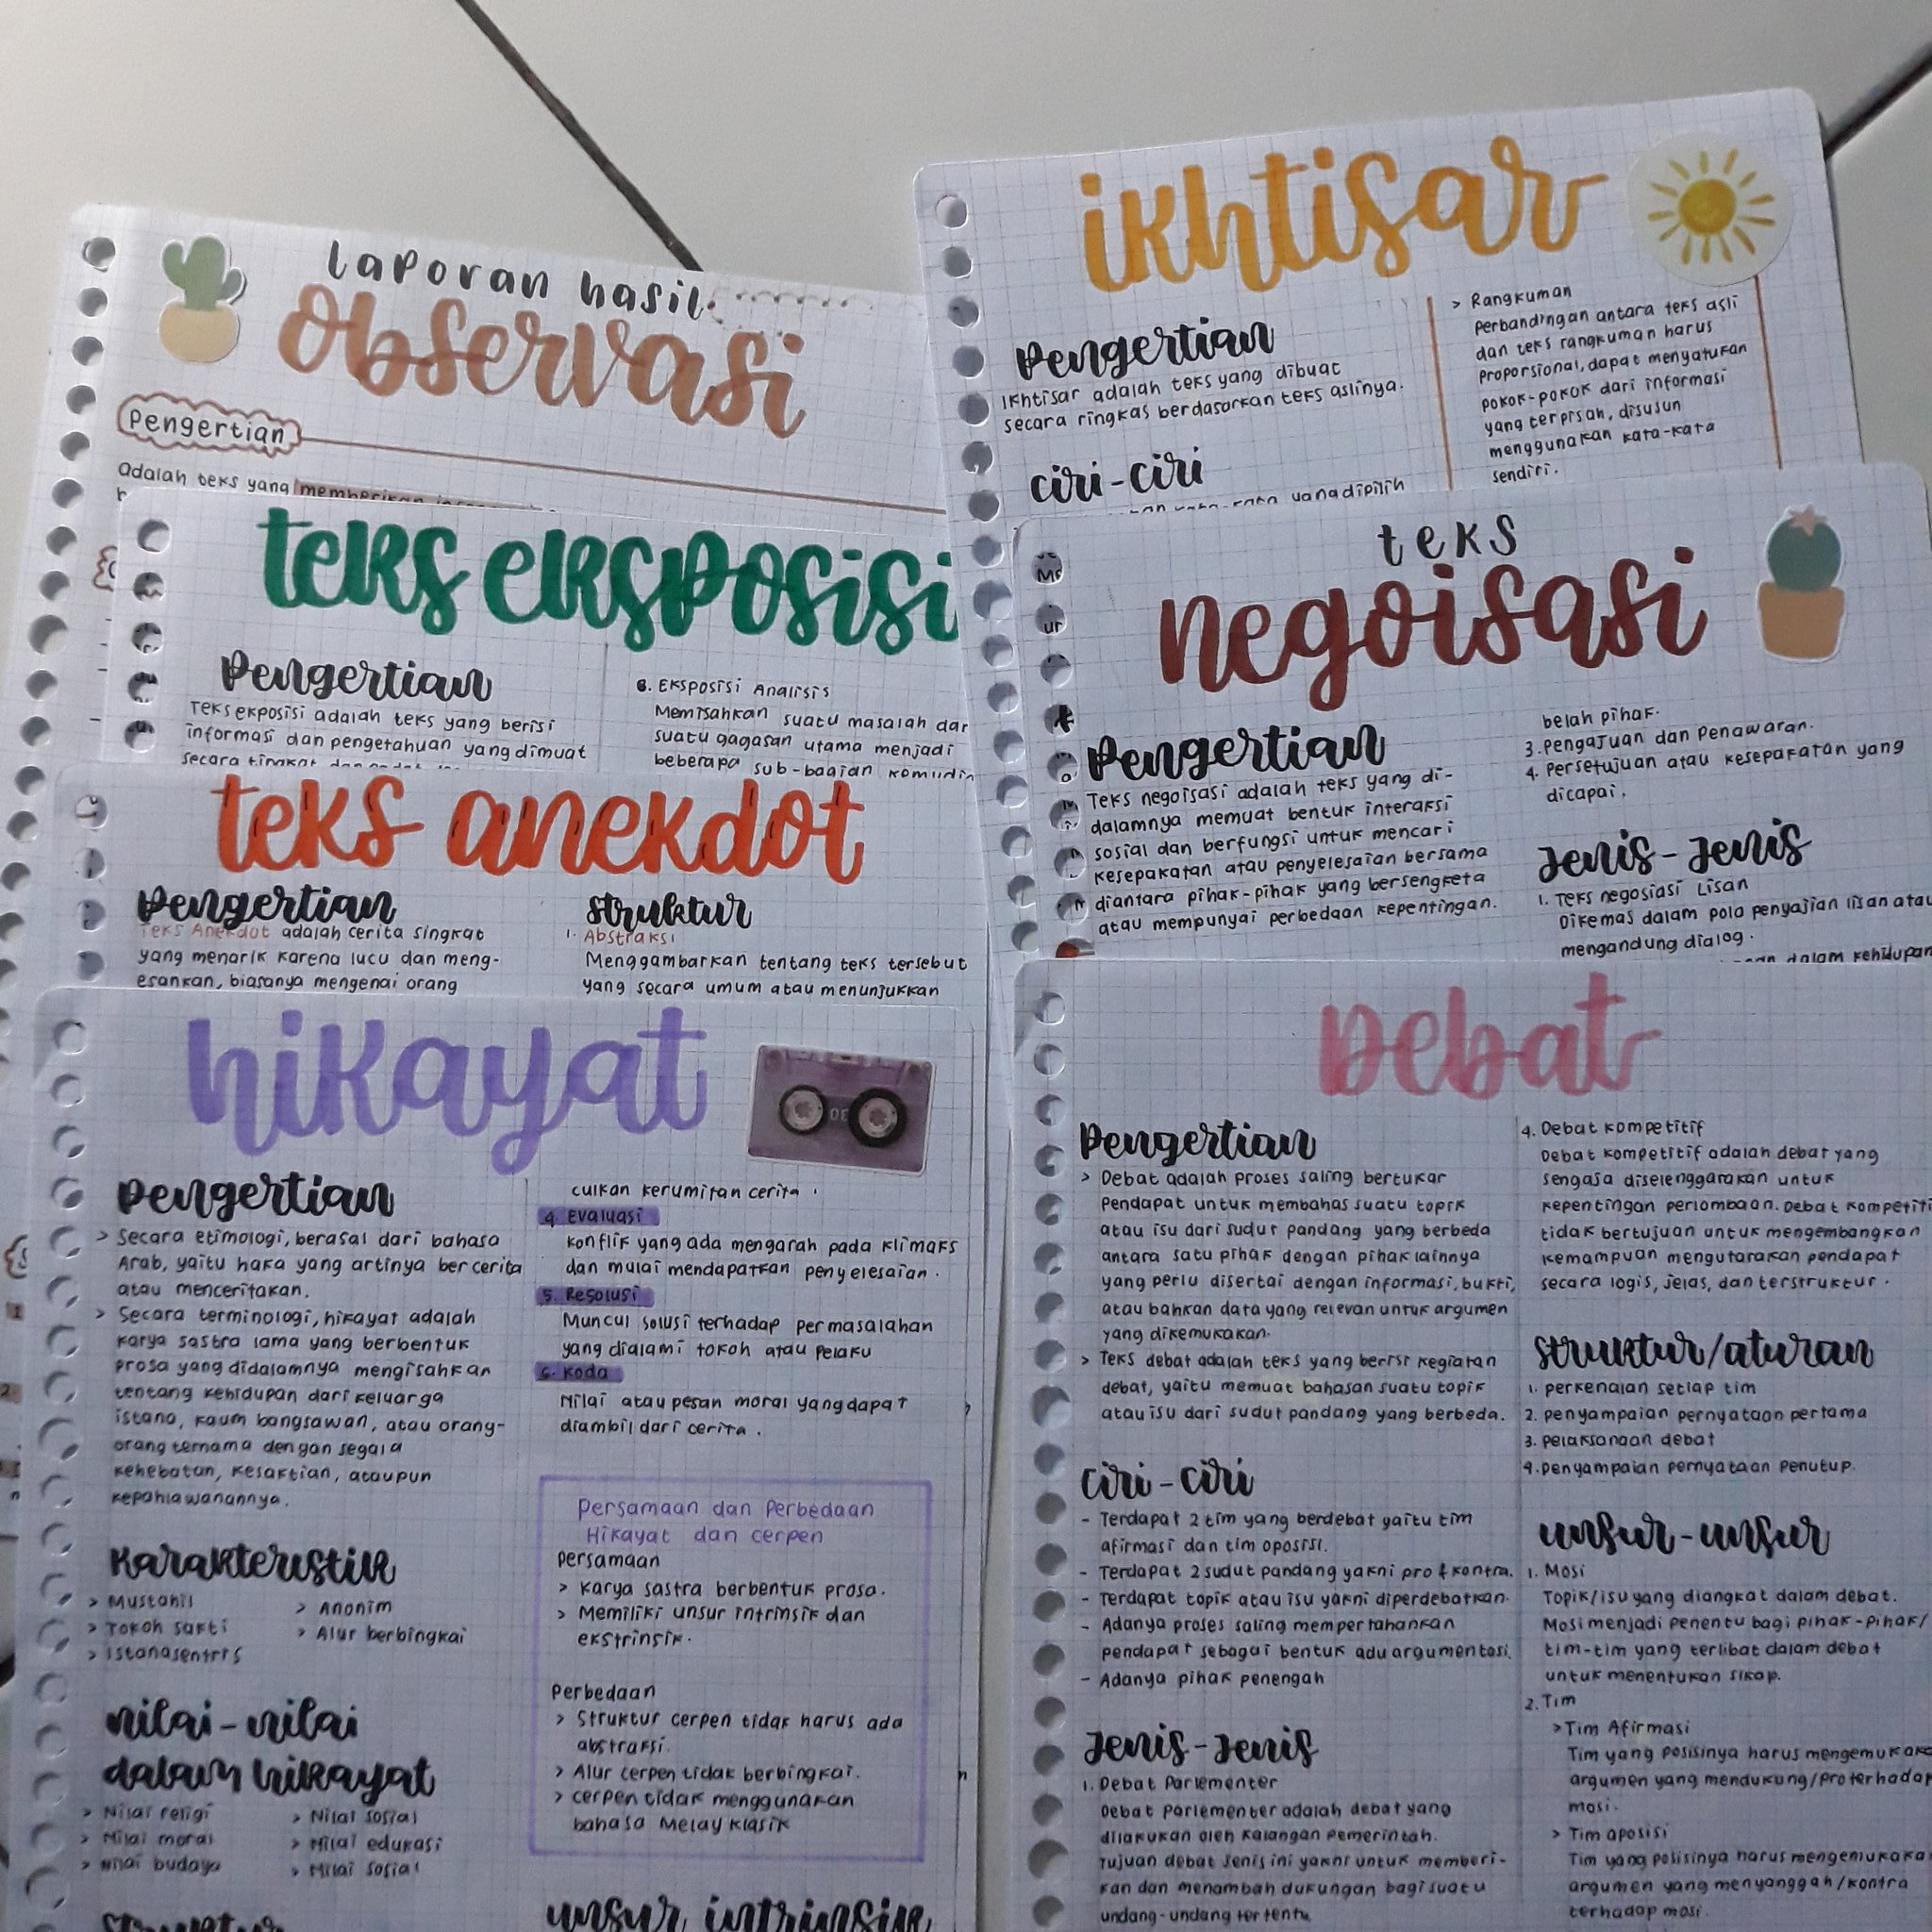 laporan hasil
observasi
Pengertian
Adalah teks yang memberikan
teks eksposisi
Pengertian
Teks ekposisi adalah teks yang berisi
informasi dan pengetahuan yang dimuat
secara
6. Eksposisi Analisis
Memisahkan suatu masalah dar
suatu gagasan utama menjadi
beberapa sub-bagian komudin
teks anekdot
Pengertian
Teks Anekdot adalah cerita singkat
yang menarik karena lucu dan meng-
esankan, biasanya mengenai orang
struktur
1. Abstraksi
Menggambarkan tentang teks tersebut
yang secara umum atau menunjukkan
hikayat
Pengertian
> Secara etimologi, berasal dari bahasa
Arab, yaitu haka yang artinya bercerita
atau menceritakan.
> Secara terminologi, hikayat adalah
karya sastra lama yang berbentuk
prosa yang didalamnya mengisahkan
tentang kehidupan dari keluarga
istana, kaum bangsawan, atau orang-
orang ternama dengan segala
kehebatan, kesaktian, ataupun
kepahlawanannya.
karakteristik
> Mustahil
> Tokoh sakti
> Istanasentris
> Anonim
> Alur berbingkai
nilai-nilai
dalam hikayat
> Nilai religi
> Nilai moral
> Nilai budaya
> Nilai sosial
> Nilai edukasi
> Nilai sosial
struktur
culkan kerumitan cerita.
4. Evaluasi
konflik yang ada mengarah pada klimaks
dan mulai mendapatkan penyelesaian.
5. Resolusi
Muncul solusi terhadap permasalahan
yang dialami tokoh atau pelaku
6. Koda
Nilai atau pesan moral yang dapat
diambil dari cerita.
Persamaan dan Perbedaan
Hikayat dan cerpen
Persamaan
> Karya sastra berbentuk prosa.
> Memiliki unsur intrinsik dan
ekstrinsik.
Perbedaan
> Struktur cerpen tidak harus ada
abstraksi.
> Alur cerpen tidak berbingkai.
> cerpen tidak menggunakan
bahasa Melay klasik
unsur intrinsik
ikhtisar
Pengertian
Ikhtisar adalah teks yang dibuat
secara ringkas berdasarkan teks aslinya.
ciri-ciri
yang dipilih
> Rangkuman
Perbandingan antara teks asli
dan teks rangkuman harus
proporsional, dapat menyatukan
pokok-pokok dari informasi
yang terpisah, disusun
menggunakan kata-kata
sendiri.
teks
negoisasi
Pengertian
Teks negoisasi adalah teks yang di-
dalamnya memuat bentuk interaksi
sosial dan berfungsi untuk mencari
kesepakatan atau penyelesaian bersama
diantara pihak-pihak yang bersengketa
atau mempunyai perbedaan kepentingan.
belah pihak.
3. Pengajuan dan Penawaran.
4. Persetujuan atau kesepakatan yang
dicapai.
Jenis-Jenis
1. Teks negosiasi Lisan
Dikemas dalam pola penyajian lisan atau
mengandung dialog.
dalam kehidupan
Debat
Pengertian
> Debat adalah proses saling bertukar
Pendapat untuk membahas suatu topik
atau isu dari sudut pandang yang berbeda
antara satu pihak dengan pihak lainnya
yang perlu disertai dengan informasi, bukti,
atau bahkan data yang relevan untuk argumen
yang dikemukakan.
> Teks debat adalah teks yang berisi kegiatan
debat, yaitu memuat bahasan suatu topik
atau isu dari sudut pandang yang berbeda.
ciri-ciri
- Terdapat 2 tim yang berdebat yaitu tim
afirmasi dan tim oposisi.
- Terdapat 2 sudut pandang yakni pro & kontra.
- Terdapat topik atau isu yakni diperdebatkan.
- Adanya proses saling mempertahankan
pendapat sebagai bentuk adu argumentasi.
- Adanya pihak penengah
Jenis-Jenis
1. Debat Parlementer
Debat Parlementer adalah debat yang
dilakukan oleh kalangan pemerintah.
Tujuan debat jenis ini yakni untuk memberi-
kan dan menambah dukungan bagi suatu
undang-undang tertentu
4. Debat kompetitif
Debat kompetitif adalah debat yang
sengasa diselenggarakan untuk
kepentingan perlombaan. Debat kompetiti
tidak bertujuan untuk mengembangkan
kemampuan mengutarakan pendapat
secara logis, jelas, dan terstruktur.
struktur/aturan
1. perkenalan setiap tim
2. penyampaian pernyataan pertama
3. pelaksanaan debat
4. penyampaian pernyataan penutup.
unsur-unsur
1. Mosi
Topik/isu yang diangkat dalam debat.
Mosi menjadi penentu bagi pihak-pihak/
tim-tim yang terlibat dalam debat
untuk menentukan sikap.
2. Tim
> Tim Afirmasi
Tim yang posisinya harus mengemukaka
argumen yang mendukung/pro terhadap
mosi.
> Tim aposisi
Tim yang polisinya harus mengemukaka
argumen yang menyanggah/kontra
terhadap mosi.